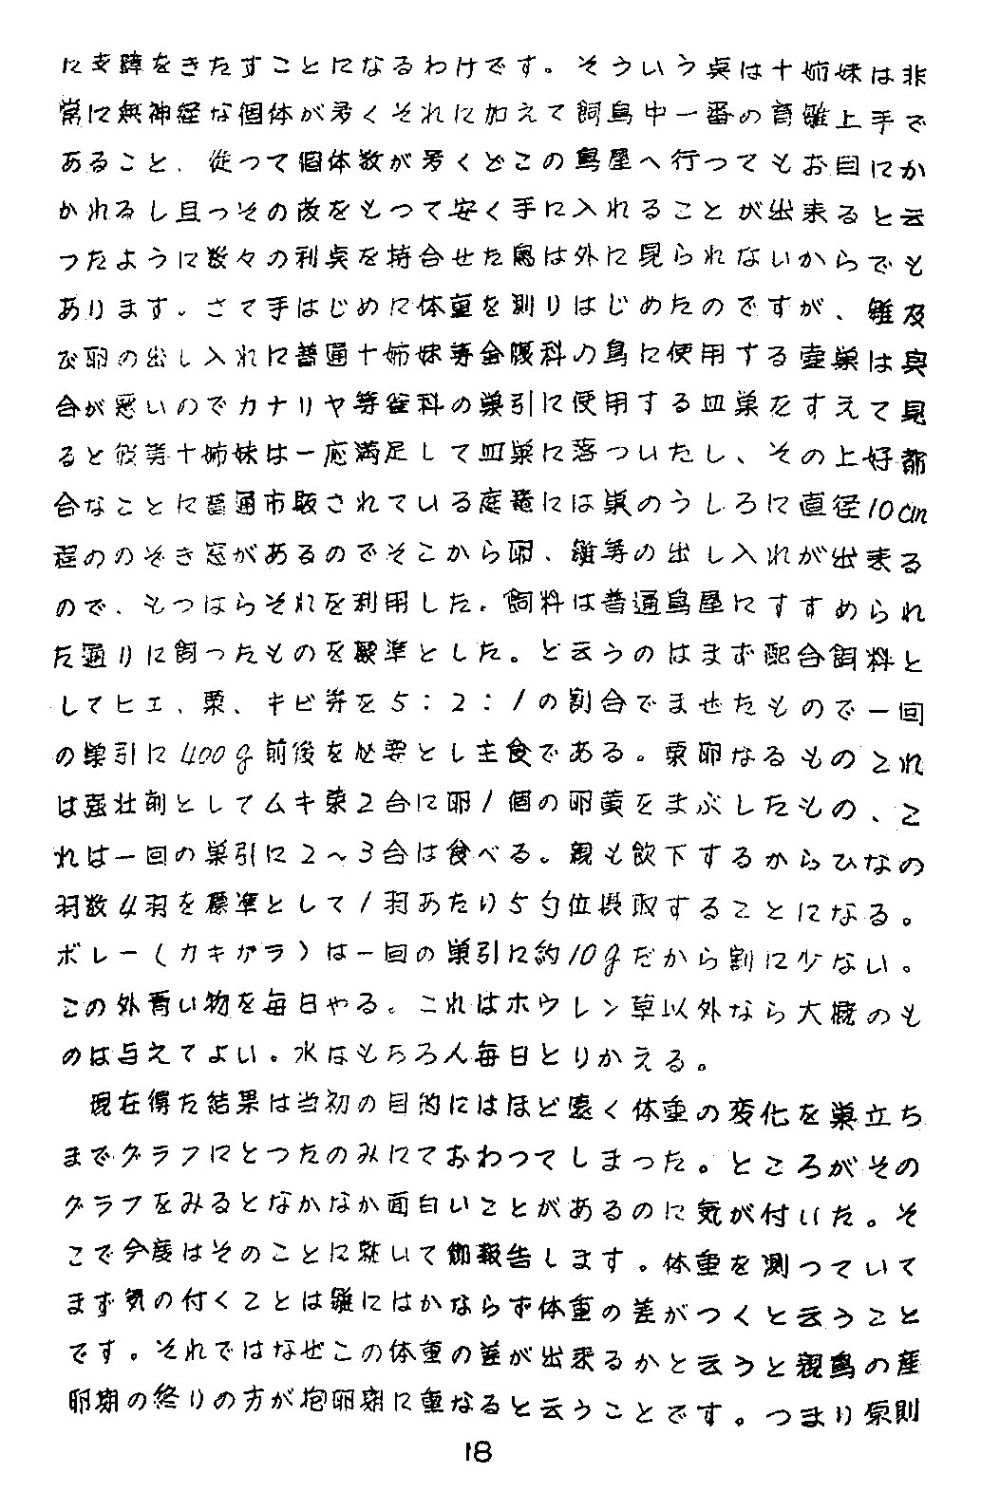 に支障をきたすことになるわけです。そういう点は十姉妹は非
常に無神経な個体が多くそれに加えて飼鳥中一番の育雛上手で
あること、従つて個体数が多くどこの鳥屋へ行つてもお目にか
かれるし且つその故をもつて安く手に入れることが出来ると云
つたように数々の利点を持合せた鳥は外に見られないからでも
あります。さて手はじめに体重を測りはじめたのですが、雛及
び卵の出し入れに普通十姉妹等金腹科の鳥に使用する壺巣は具
合が悪いのでカナリヤ等雀科の巣引に使用する皿巣をすえて見
ると彼等十姉妹は一応満足して皿巣に落ついたし、その上好都
合なことに普通市販されている庭篭には巣のうしろに直径10cm
程ののぞき窓があるのでそこから卵、雛等の出し入れが出来る
ので、もつぱらそれを利用した。飼料は普通鳥屋にすすめられ
た通りに飼ったものを標準とした。と云うのはまず配合飼料と
してヒエ、粟、キビ等を5:2:1の割合でませたもので一回
の巣引に400g前後を必要とし主食である。粟卵なるものこれ
は強壮剤としてムキ粟2合に卵1個の卵黄をまぶしたもの、こ
れは一回の巣引に2～3合は食べる。親も飲下するからひなの
羽数4羽を標準として1羽あたり5勺位摂取することになる。
ボレー(カキガラ)は一回の巣引に約10gだから割に少ない。
この外青い物を毎日やる。これはホウレン草以外なら大概のも
のは与えてよい。水はもちろん毎日とりかえる。
現在得た結果は当初の目的にはほど遠く体重の変化を巣立ち
までグラフにとつたのみにておわつてしまった。ところがその
グラフをみるとなかなか面白いことがあるのに気が付いた。そ
こで今度はそのことに就いて御報告します。体重を測つていて
まず気の付くことは雛にはかならず体重の差がつくと云うこと
です。それではなぜこの体重の差が出来るかと云うと親鳥の産
卵期の終りの方が抱卵期に重なると云うことです。つまり原則
18